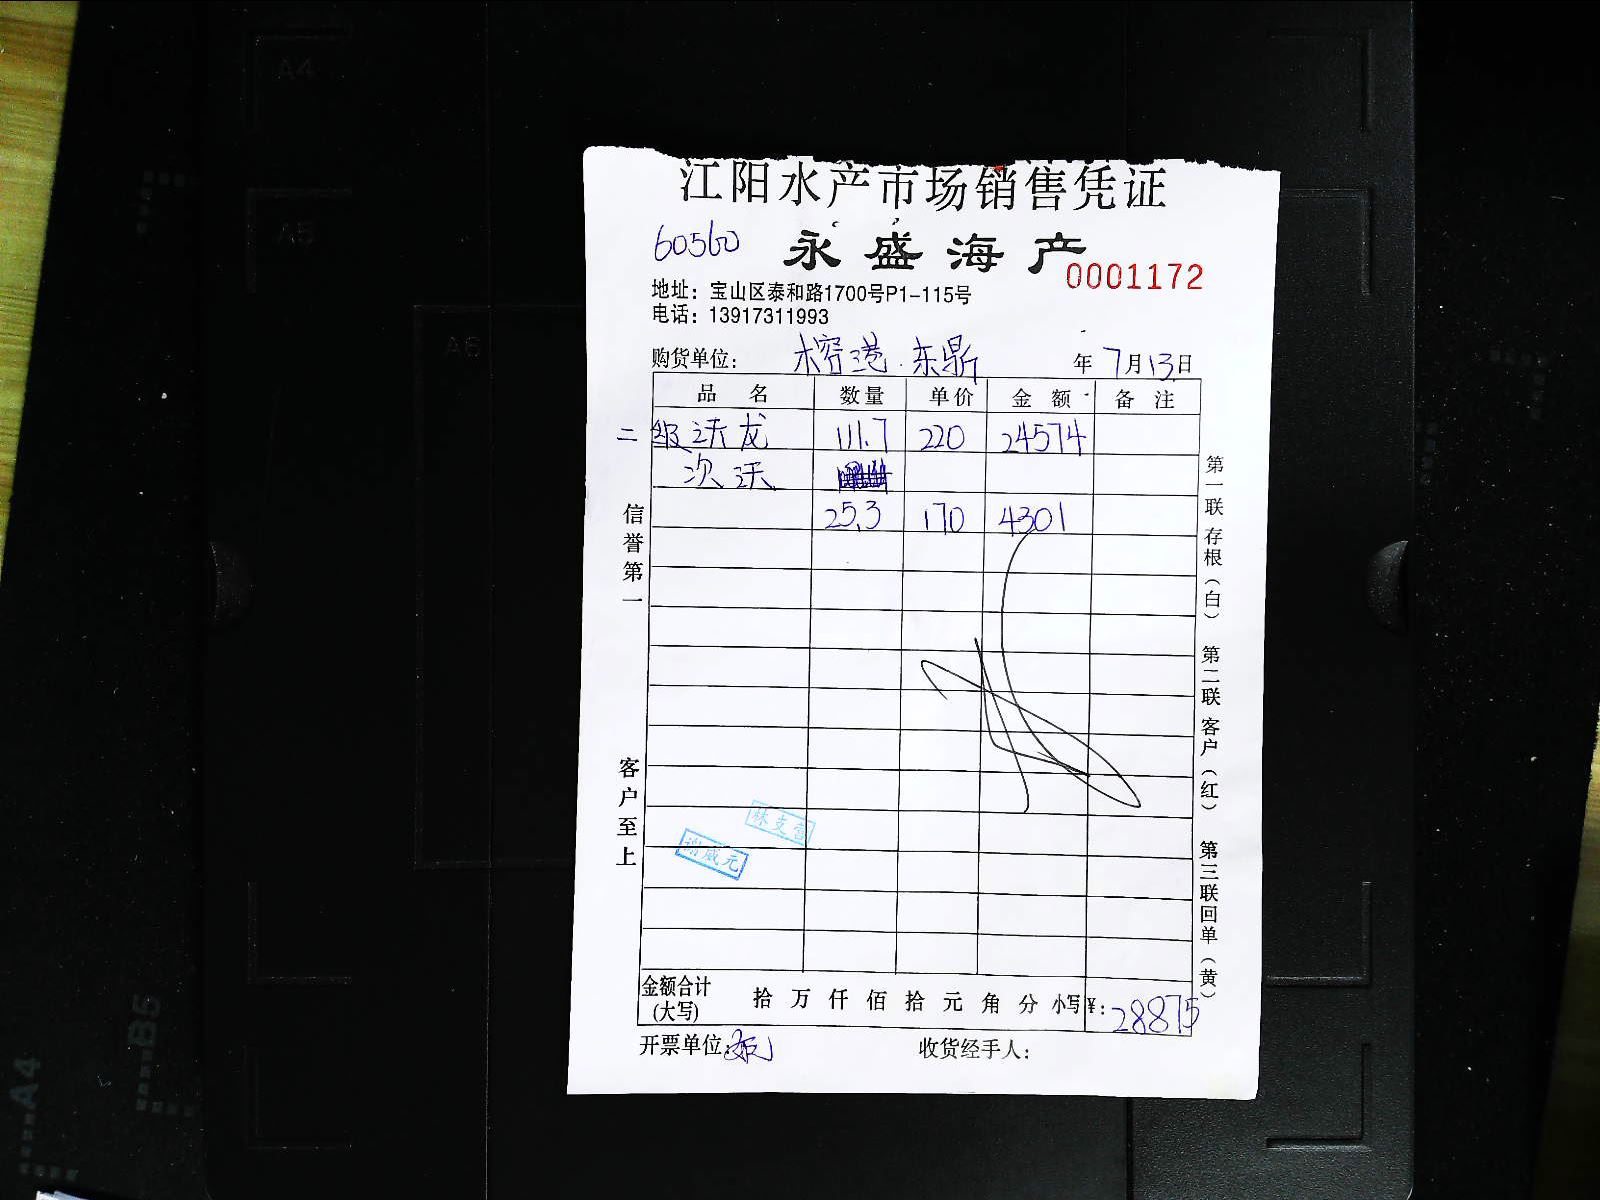 江阳水产市场销售凭证
60560 永盛海产
0001172
地址：宝山区泰和路1700号P1-115号
电话：13917311993
购货单位：榕港.东鼎 年7月13日
品名 数量 单价 金额 备注
二级沃龙 111.7 220 24574
次沃
25.3 170 4301
信誉第一
客户至上
第一联存根（白） 第二联客户（红） 第三联回单（黄）
金额合计(大写) 拾 万 仟 佰 拾 元 角 分 小写¥：28875
开票单位： 收货经手人：
A4
A5
A6
B5
A4